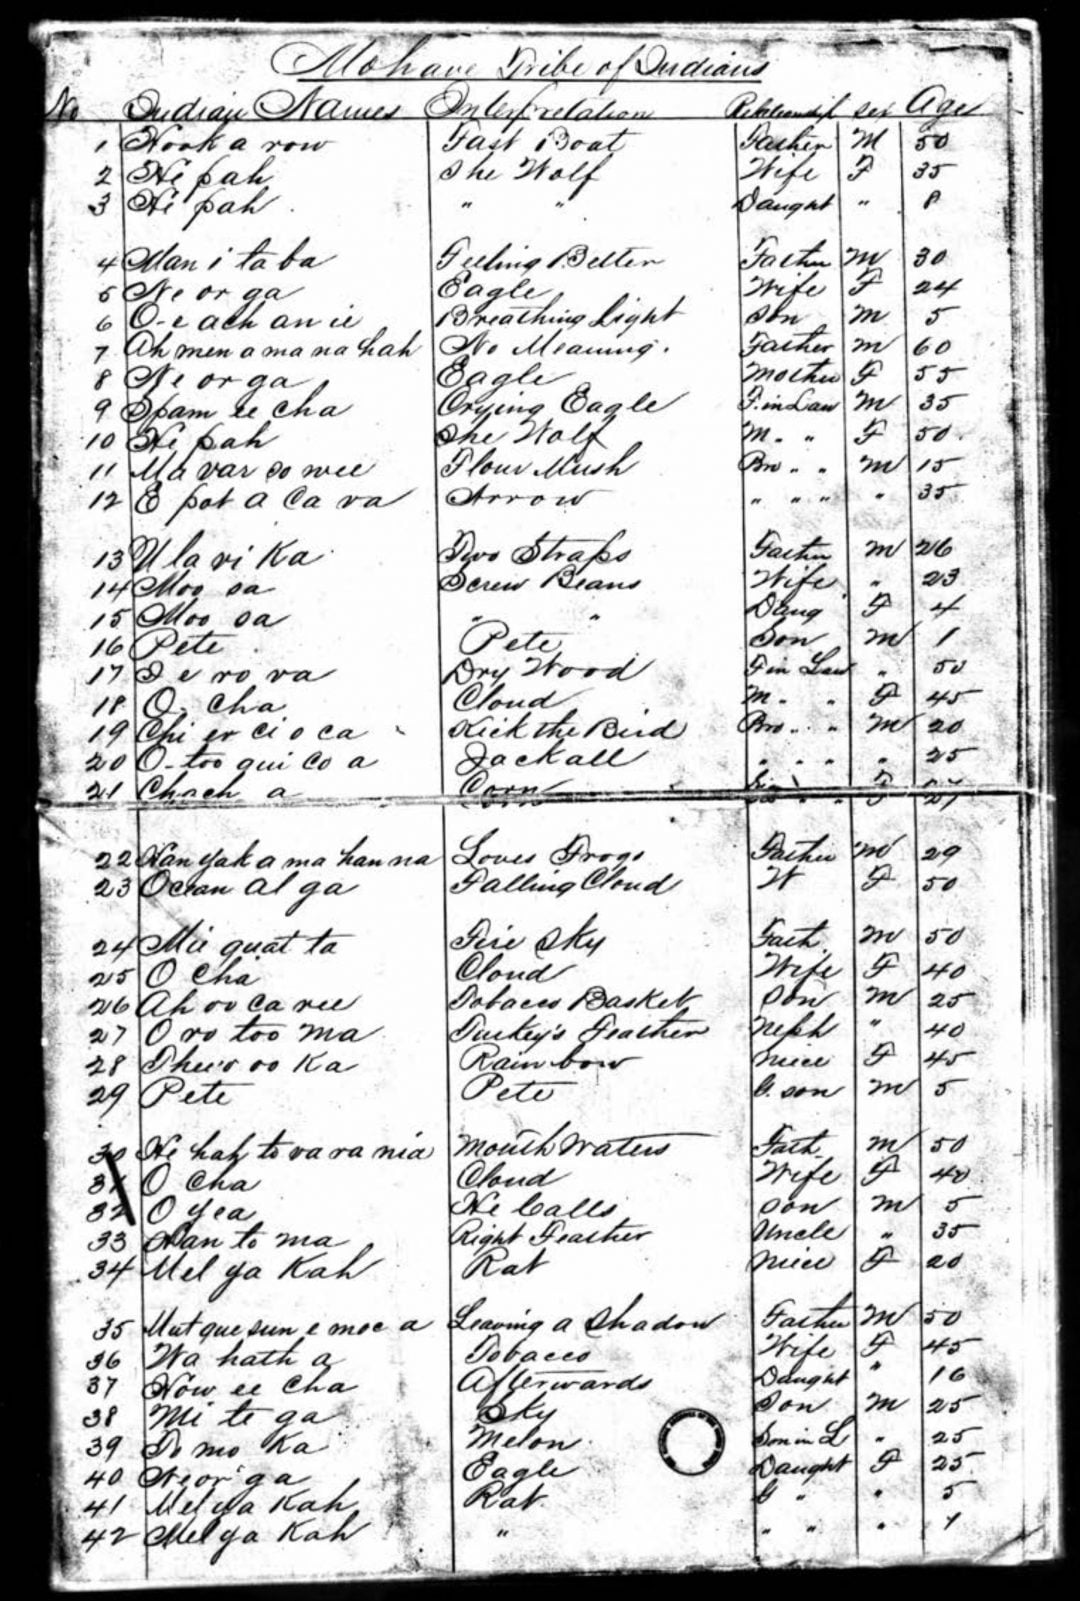 Mohave Tribe of Indians
No Indian Names Interpretation Relationship Sex Age
1 Hook a row Fast Boat Father M 50
2 He pah She Wolf Wife F 35
3 He pah " " Daught " 8
4 Man i ta ba Feeling Better Father M 30
5 Ne or ga Eagle Wife F 24
6 O-e ach an ie Breathing Light Son M 5
7 Ah men a ma na hah No Meaning. Father M 60
8 Ne or ga Eagle Mother F 55
9 Spam ee cha Crying Eagle F. in Law M 35
10 He pah She Wolf M. " F 50.
11 Ma var so wee Flour Mush Bro " " M 15
12 E pot a ca va Arrow " " " " 35
13 U la vi Ka Two Straps Father M 26
14 Moo sa Screw Beans Wife " 23
15 Moo sa " " Daug F 4
16 Pete Pete Son M 1
17 I e ro va Dry Wood F in Law " 50
18 O. cha Cloud M. " F 45
19 Chi er ci o ca Kick the Bird Bro. " M 20
20 O-too qui co a Jackall " " " " 25
21 Chach a Corn " " F 27
22 Han yak a ma han na Loves Frogs Father M 29
23 Ocean al ga Falling Cloud W F 50
24 Mie quat ta Fire Sky Fath. M 50
25 O cha Cloud Wife F 40
26 Ah oo ca ree Tobacco Basket Son M 25
27 O ro too ma Turkey's Feather Neph " 40
28 oo Ka Rainbow Niece F 45
29 Pete Pete G. son M 5
30 He hah to va ra nia Mouth Waters Fath. M 50
31 O cha Cloud Wife F 40
32 O yea He Calls Son M 5
33 Nan to ma Right Feather Uncle " 35
34 Mel ya Kah Rat Niece F 20
35 Mat que sun e moe a Leaving a Shadow Father M 50
36 Wa hath a Tobacco Wife F 45
37 How ee cha Afterwards Daught " 16
38 Mi te ga Sky Son M 25
39 To mo Ka Melon Son in L " 25
40 Neor ga Eagle Daught F 25
41 Mel ya Kah Rat. G " " 5
42 Mel ya Kah " " " "